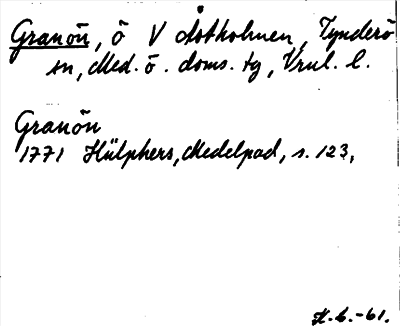 Granön, ö V Åstholmen, Tynderö
sn, Med. ö. doms. tg, Vrnl. l.
Granön
1771 Hülphers, Medelpad, s. 123,
H.b.-61.